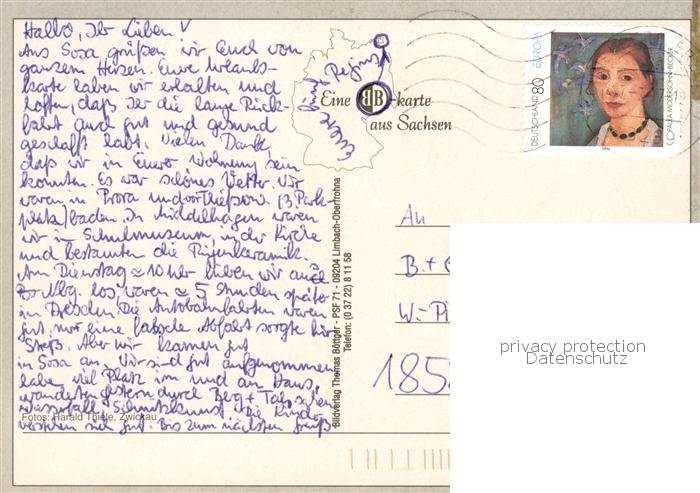 Hallo, Ihr Lieben!
Aus Sosa grüßen wir Euch von
ganzem Herzen. Eure Urlaubs-
karte haben wir erhalten und
hoffen, daß Ihr die lange Rück-
fahrt auch gut und gesund
geschafft habt. Vielen Dank,
daß wir in Eurer Wohnung sein
konnten. Es war schönes Wetter. Wir
waren in Prora und vor Thiessow (3 Park-
plätze) baden. In Middelhagen waren
wir im Schulmuseum, in der Kirche
und bestaunten die Rügenkeramik.
Am Dienstag ≈ 10 Uhr fuhren wir
los, waren ≈ 5 Stunden später
in Dresden. Die Autobahnfahrten waren
gut, nur eine falsche Abfahrt sorgte für
Streß. Aber wir kamen gut
in Sosa an. Wir sind gut aufgenommen
haben viel Platz im und am Haus,
wanderten gestern durch Berg + Tal
Wasserfall, Schnitzkunst. Die Kinder
verstehen sich gut. Bis zum nächsten Gruß
Eure fünf
Eine BB-karte
aus Sachsen
DEUTSCHLAND 80 EUROPA
PAULA MODERSOHN-BECKER
1996
Bildverlag Thomas Böttger - PSF 71 - 09204 Limbach-Oberfrohna
Telefon: (0 37 22) 8 11 58
Fotos: Harald Thiele, Zwickau
An
B. +
W.-Pi
185
privacy protection
Datenschutz